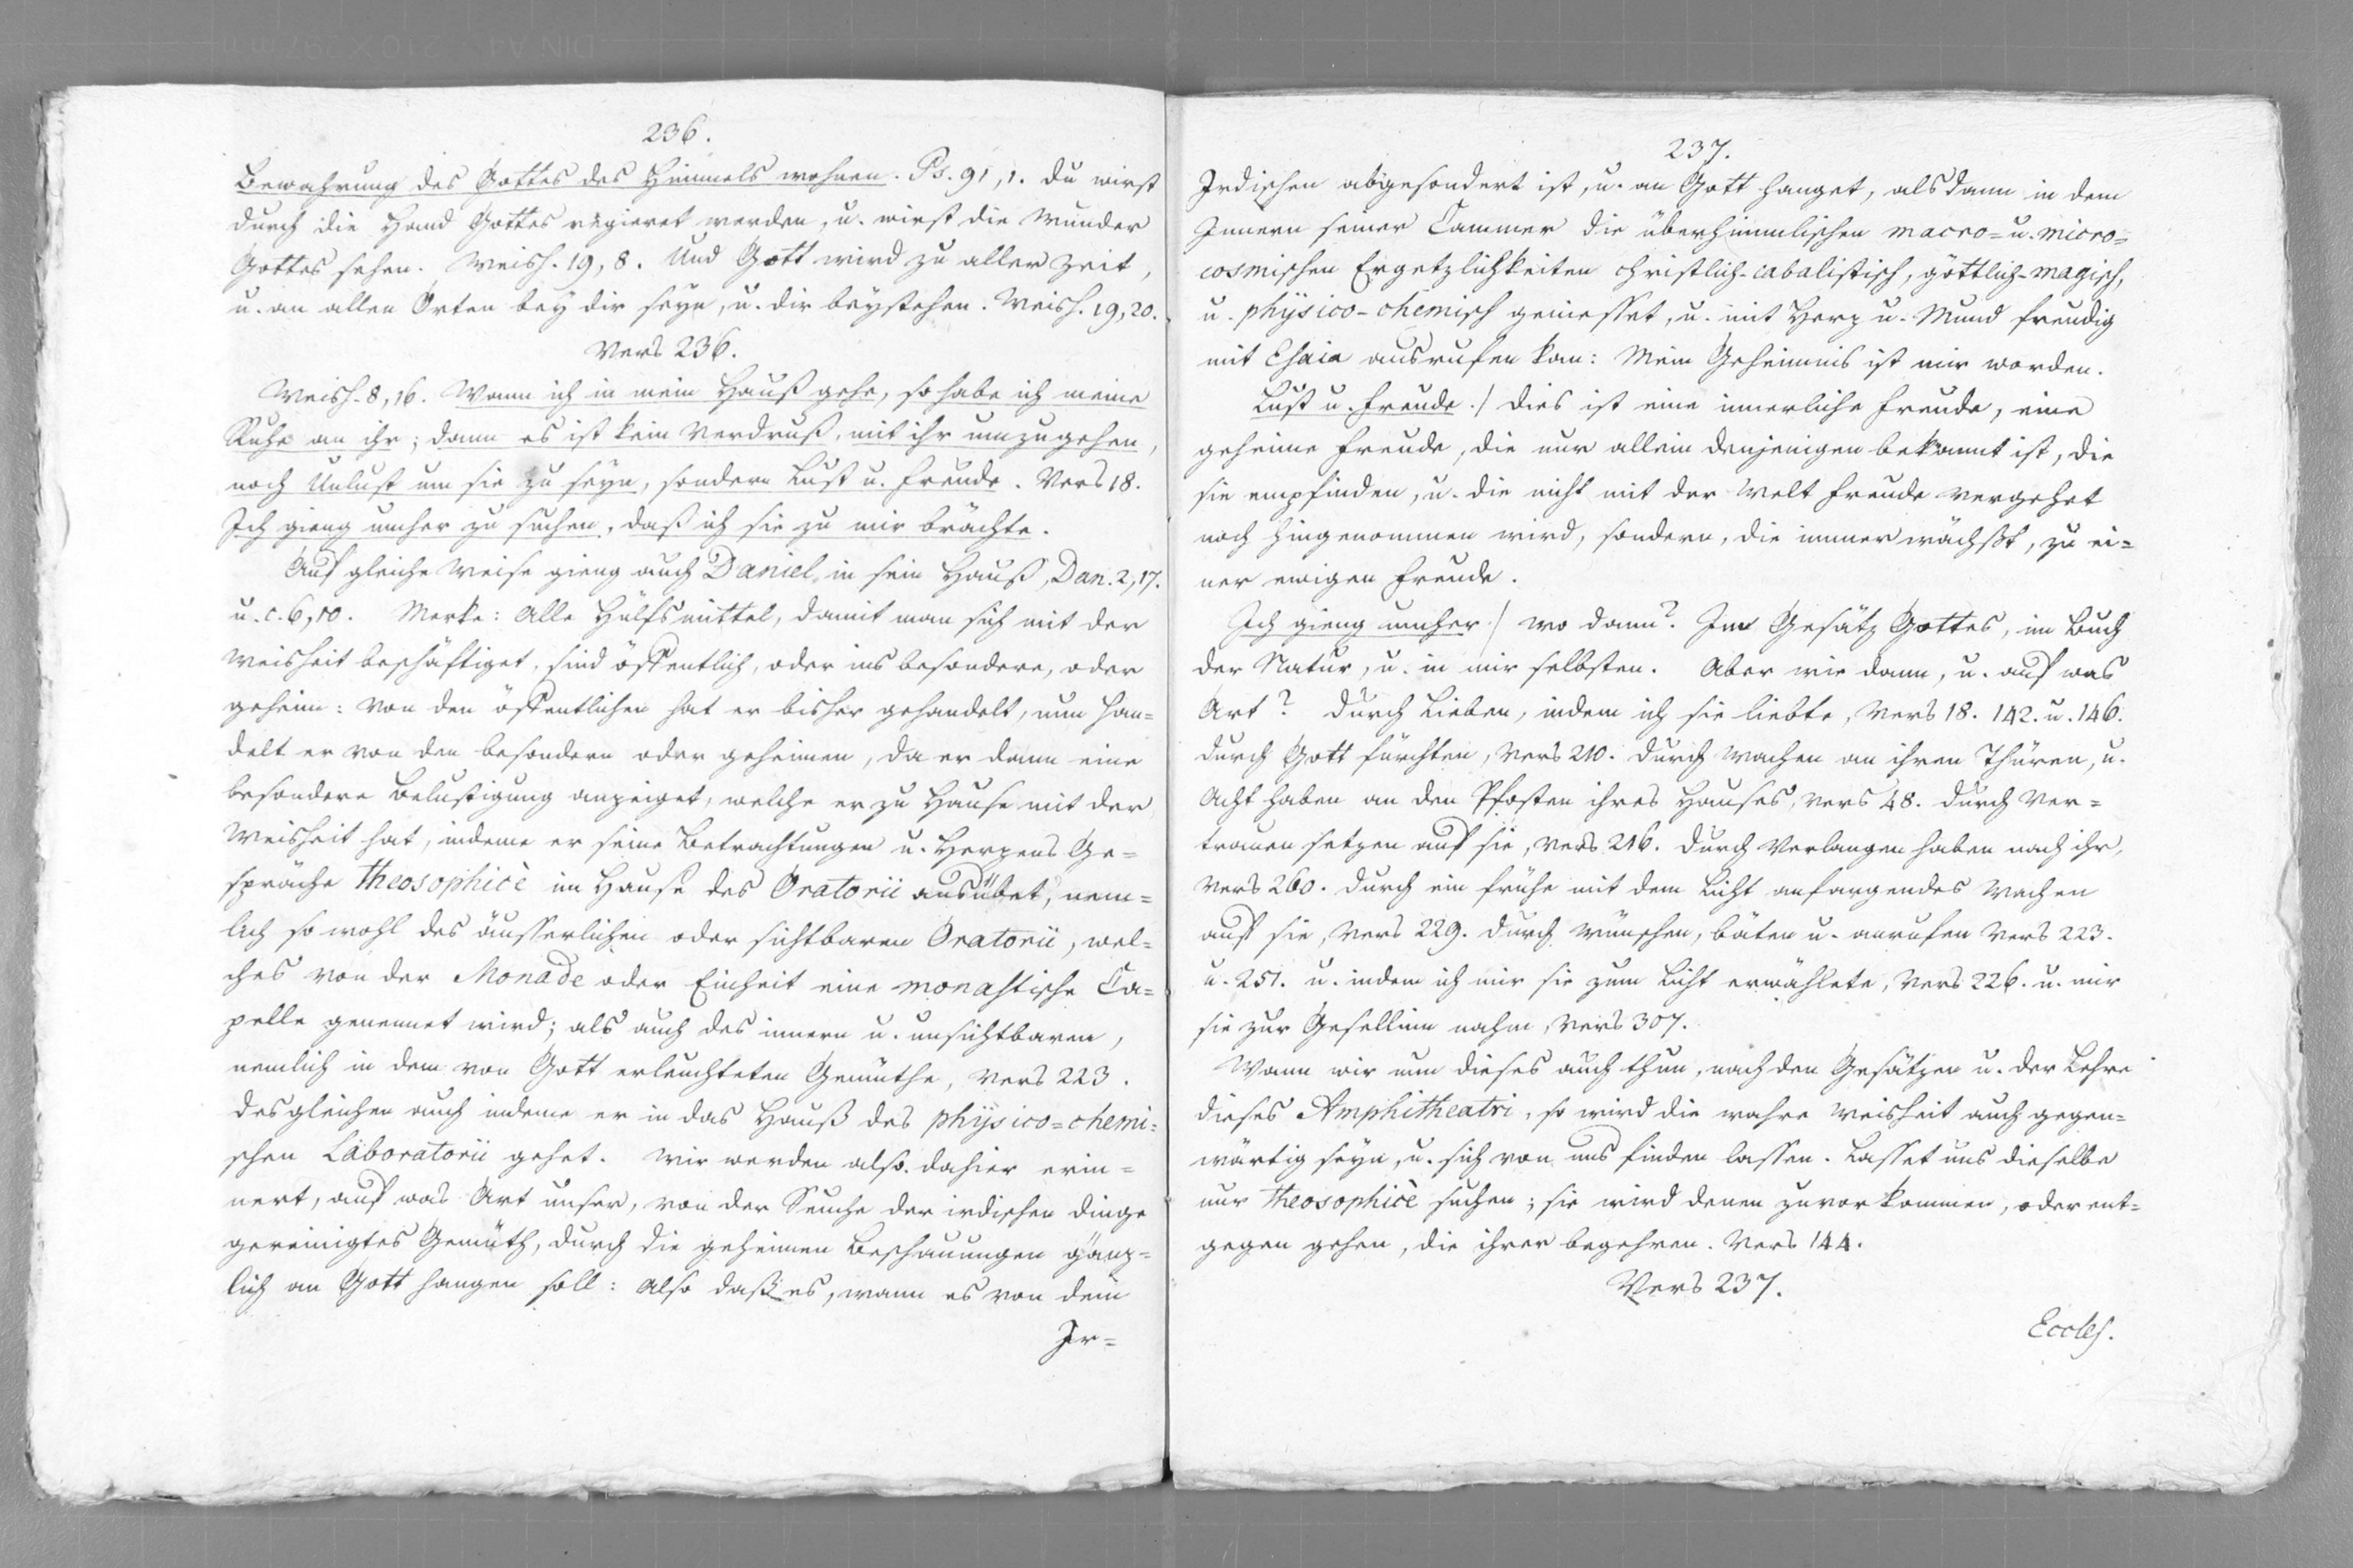 236.
Bewahrung des Gottes des Himmels wohnen. Ps. 91, 1. du wirst
durch die Hand Gottes regieret werden, u. wirst die Wunder
Gottes sehen. Weish. 19, 8. Und Gott wird zu aller Zeit,
u. an allen Orten bey dir seyn, u. dir beystehen. Weish. 19, 20.
Vers 236.
Weish. 8, 16. Wann ich in mein Hauß gehe, so habe ich meine
Ruhe an ihr; dann es ist kein Verdruß, mit ihr umzugehen,
noch Unlust um sie zu seyn, sondern Lust u. Freude. Vers 18.
Ich gieng umher zu suchen, daß ich sie zu mir brächte.
Auf gleiche Weise gieng auch Daniel in sein Hauß, Dan. 2, 17.
u. c. 6, 10. Merke: Alle Hülfsmittel, damit man sich mit der
Weisheit beschäftiget, sind öffentlich, oder ins besondere, oder
geheim: von den öffentlichen hat er bisher gehandelt, nun han=
delt er von den besondern oder geheimen, da er dann eine
besondere Belustigung anzeiget, welche er zu Hause mit der
Weisheit hat, indeme er seine Betrachtungen u. Herzens Ge=
spräche theosophicè im Hause des Oratorii ausübet, nem=
lich so wohl des äusserlichen oder sichtbaren Oratorii, wel=
ches von der Monade oder Einheit eine monastische Ca=
pelle genennet wird; als auch des innern u. unsichtbaren,
nemlich in dem von Gott erleuchteten Gemüthe, Vers 223.
desgleichen auch indeme er in das Hauß des physico=chemi=
schen Laboratorii gehet. Wir werden also dahier erin=
nert, auf was Art unser, von der Seuche der irdischen Dinge
gereinigtes Gemüth, durch die geheimen Beschauungen gänz=
lich an Gott hangen soll: Also daß es, wann es von dem
Ir=
237.
Irdischen abgesondert ist, u. an Gott hanget, alsdann in dem
Innern seiner Cammer die überhimmlischen macro= u. micro=
cosmischen Ergetzlichkeiten christlich-cabalistisch, göttlich-magisch,
u. physico-chemisch geniesset, u. mit Herz u. Mund freudig
mit Esaia ausrufen kan: Mein Geheimnis ist mir worden.
Lust u. Freude./ dies ist eine innerliche Freude, eine
geheime Freude, die nur allein denjenigen bekannt ist, die
sie empfinden, u. die nicht mit der Welt Freude vergehet
noch hingenommen wird, sondern, die immer wächßt, zu ei=
ner ewigen Freude.
Ich gieng umher/ wo dann? Im Gesätz Gottes, im Buch
der Natur, u. in mir selbsten. Aber wie dann, u. auf was
Art? durch Lieben, indem ich sie liebte, Vers 18. 142. u. 146.
durch Gott fürchten, Vers 210. durch Wachen an ihren Thüren, u.
Acht haben an den Pfosten ihres Hauses, Vers 48. durch Ver=
trauen setzen auf sie, Vers 216. durch Verlangen haben nach ihr,
Vers 260. durch ein frühe mit dem Licht anfangendes Wachen
auf sie, Vers 229. durch wünschen, bäten u. anrufen Vers 223.
u. 251. u. indem ich mir sie zum Licht erwählete, Vers 226. u. mir
sie zur Gesellinn nahm, Vers 307.
Wann wir nun dieses auch thun, nach den Gesätzen u. der Lehre
dieses Amphitheatri, so wird die wahre Weisheit auch gegen=
wärtig seyn, u. sich von uns finden lassen. Lasset uns dieselbe
nur theosophicè suchen; sie wird denen zuvor kommen, oder ent=
gegen gehen, die ihrer begehren. Vers 144.
Vers 237.
Eccles.